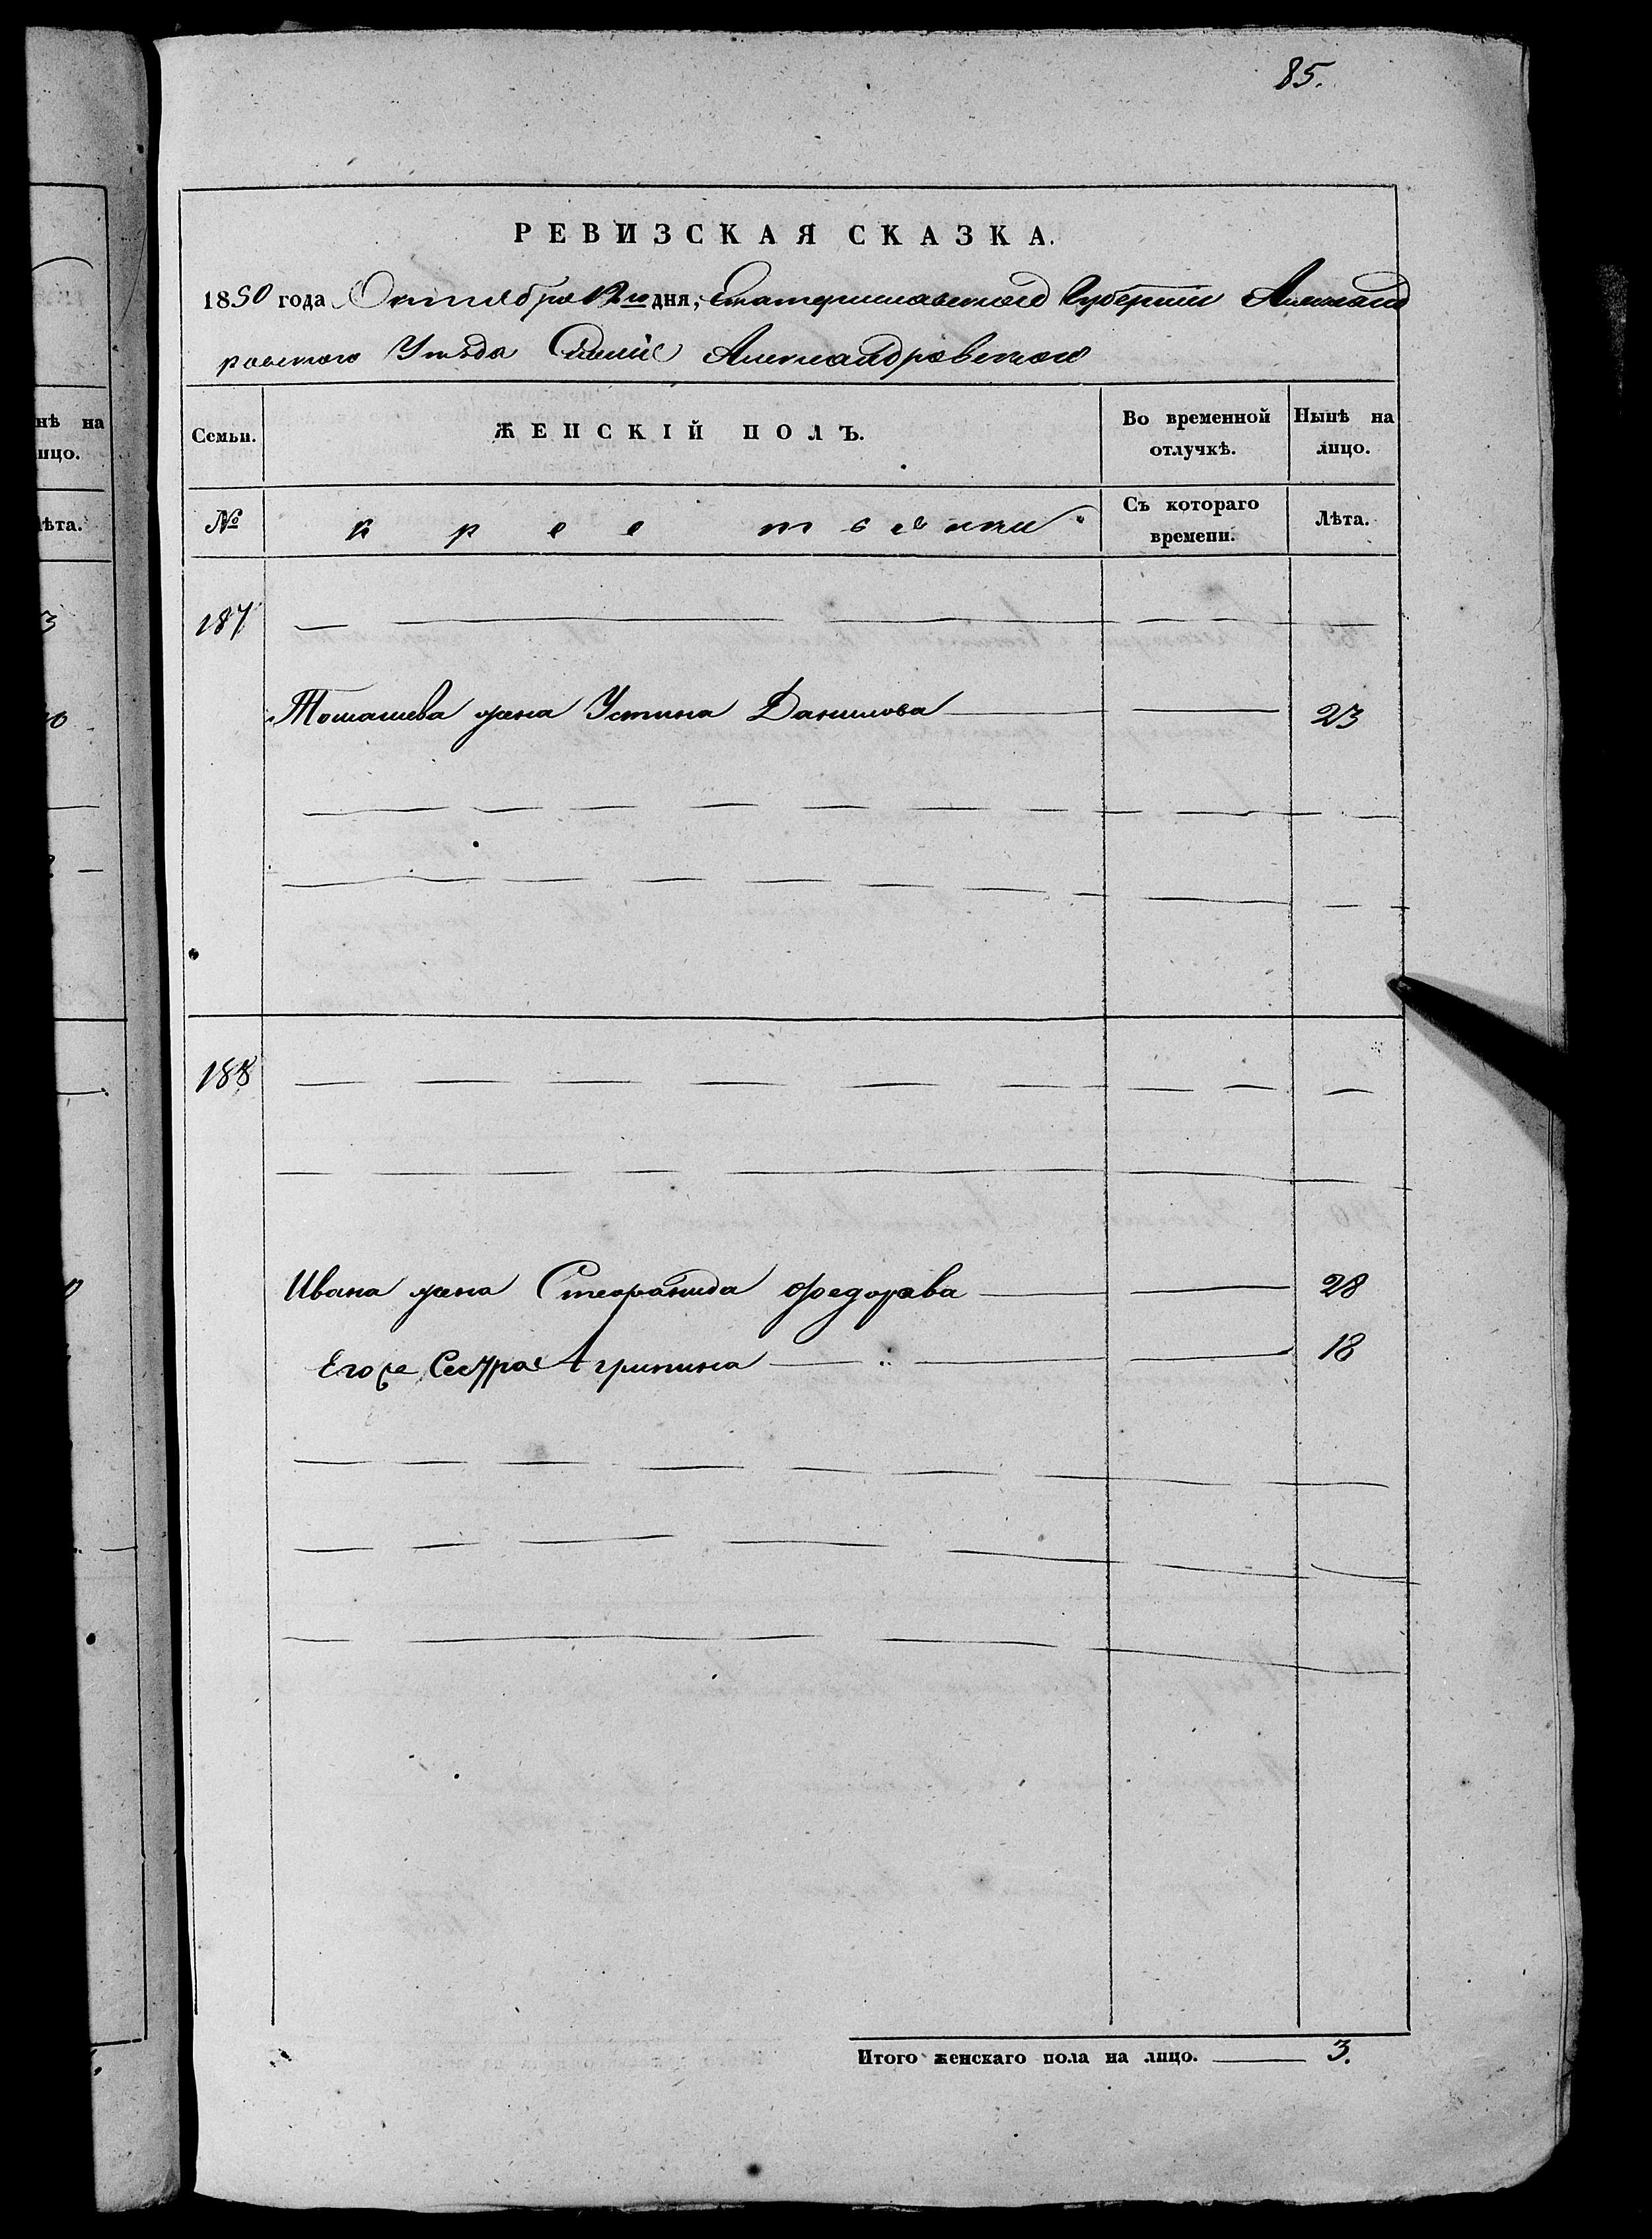 85.
РЕВИЗСКАЯ СКАЗКА.
1850 года Октября 12го дня, Екатеринославской Губернии Александ
ровского Уезда Александровской
Семьи.
ЖЕНСКІЙ ПОЛЪ.
Во временной отлучкѣ.
Нынѣ на лицо.
№
крестьянки
Съ котораго времени.
Лѣта.
187
жена Устина Данилова 23
188
Ивана жена Стефанида Федорова 28
Его же Сестра Агрипина 18
Итого женскаго пола на лицо. 3.
нѣ на
ицо.
ѣта.
3